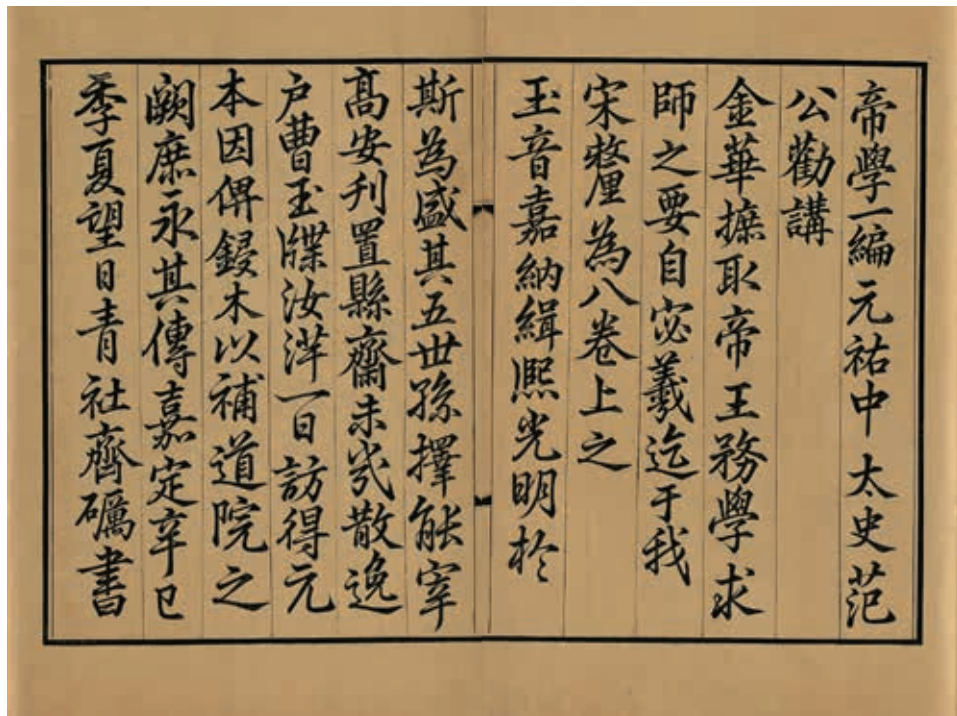 帝學一編元祐中太史范
公勸講
金華摭取帝王務學求
師之要自宓羲迄于我
宋釐為八卷上之
玉音嘉納緝熙光明於
斯為盛其五世孫擇能宰
高安刋置縣齋未幾散逸
戶曹玉牒汝洋一日訪得元
本因俾鋟木以補道院之
闕庶永其傳嘉定辛巳
季夏望日青社齊礪書